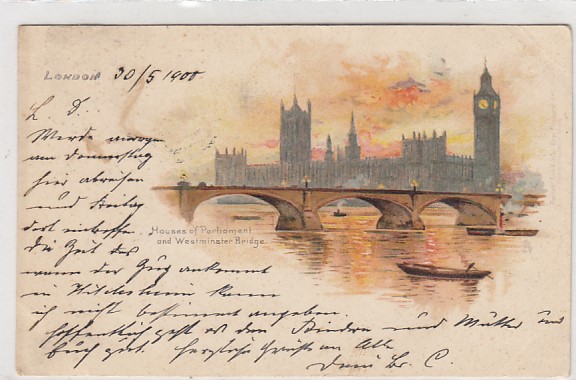 LONDON 30/5 1900
L. D.
Werde morgen
am Donnerstag
hier abreisen
und Freitag
dort eintreffen
die Zeit des
wann der Zug ankommt
in Hildesheim kann
ich nicht bestimmt angeben.
Hoffentlich geht es den Kindern und Mutter und
Euch gut. Herzliche Grüße an Alle
Dein Br. C.
Houses of Parliament
and Westminster Bridge.